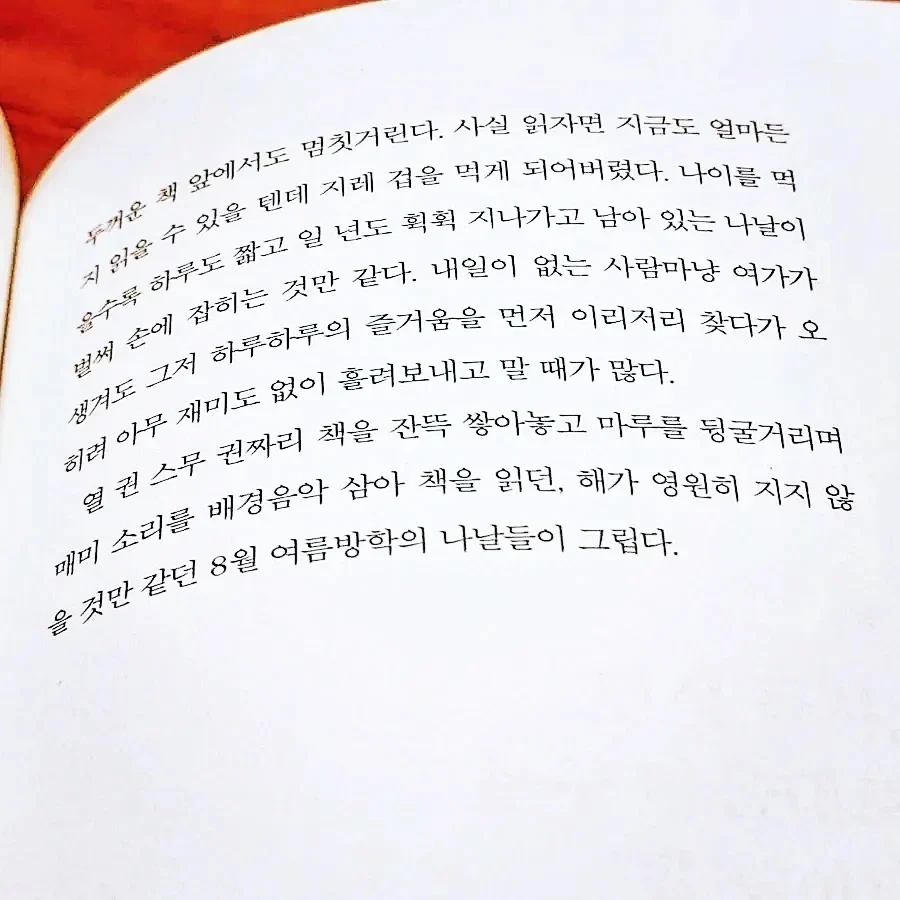 두꺼운 책 앞에서도 멈칫거린다. 사실 읽자면 지금도 얼마든
지 읽을 수 있을 텐데 지레 겁을 먹게 되어버렸다. 나이를 먹
을수록 하루도 짧고 일 년도 휙휙 지나가고 남아 있는 나날이
벌써 손에 잡히는 것만 같다. 내일이 없는 사람마냥 여가가
생겨도 그저 하루하루의 즐거움을 먼저 이리저리 찾다가 오
히려 아무 재미도 없이 흘려보내고 말 때가 많다.
열 권 스무 권짜리 책을 잔뜩 쌓아놓고 마루를 뒹굴거리며
매미 소리를 배경음악 삼아 책을 읽던, 해가 영원히 지지 않
을 것만 같던 8월 여름방학의 나날들이 그립다.